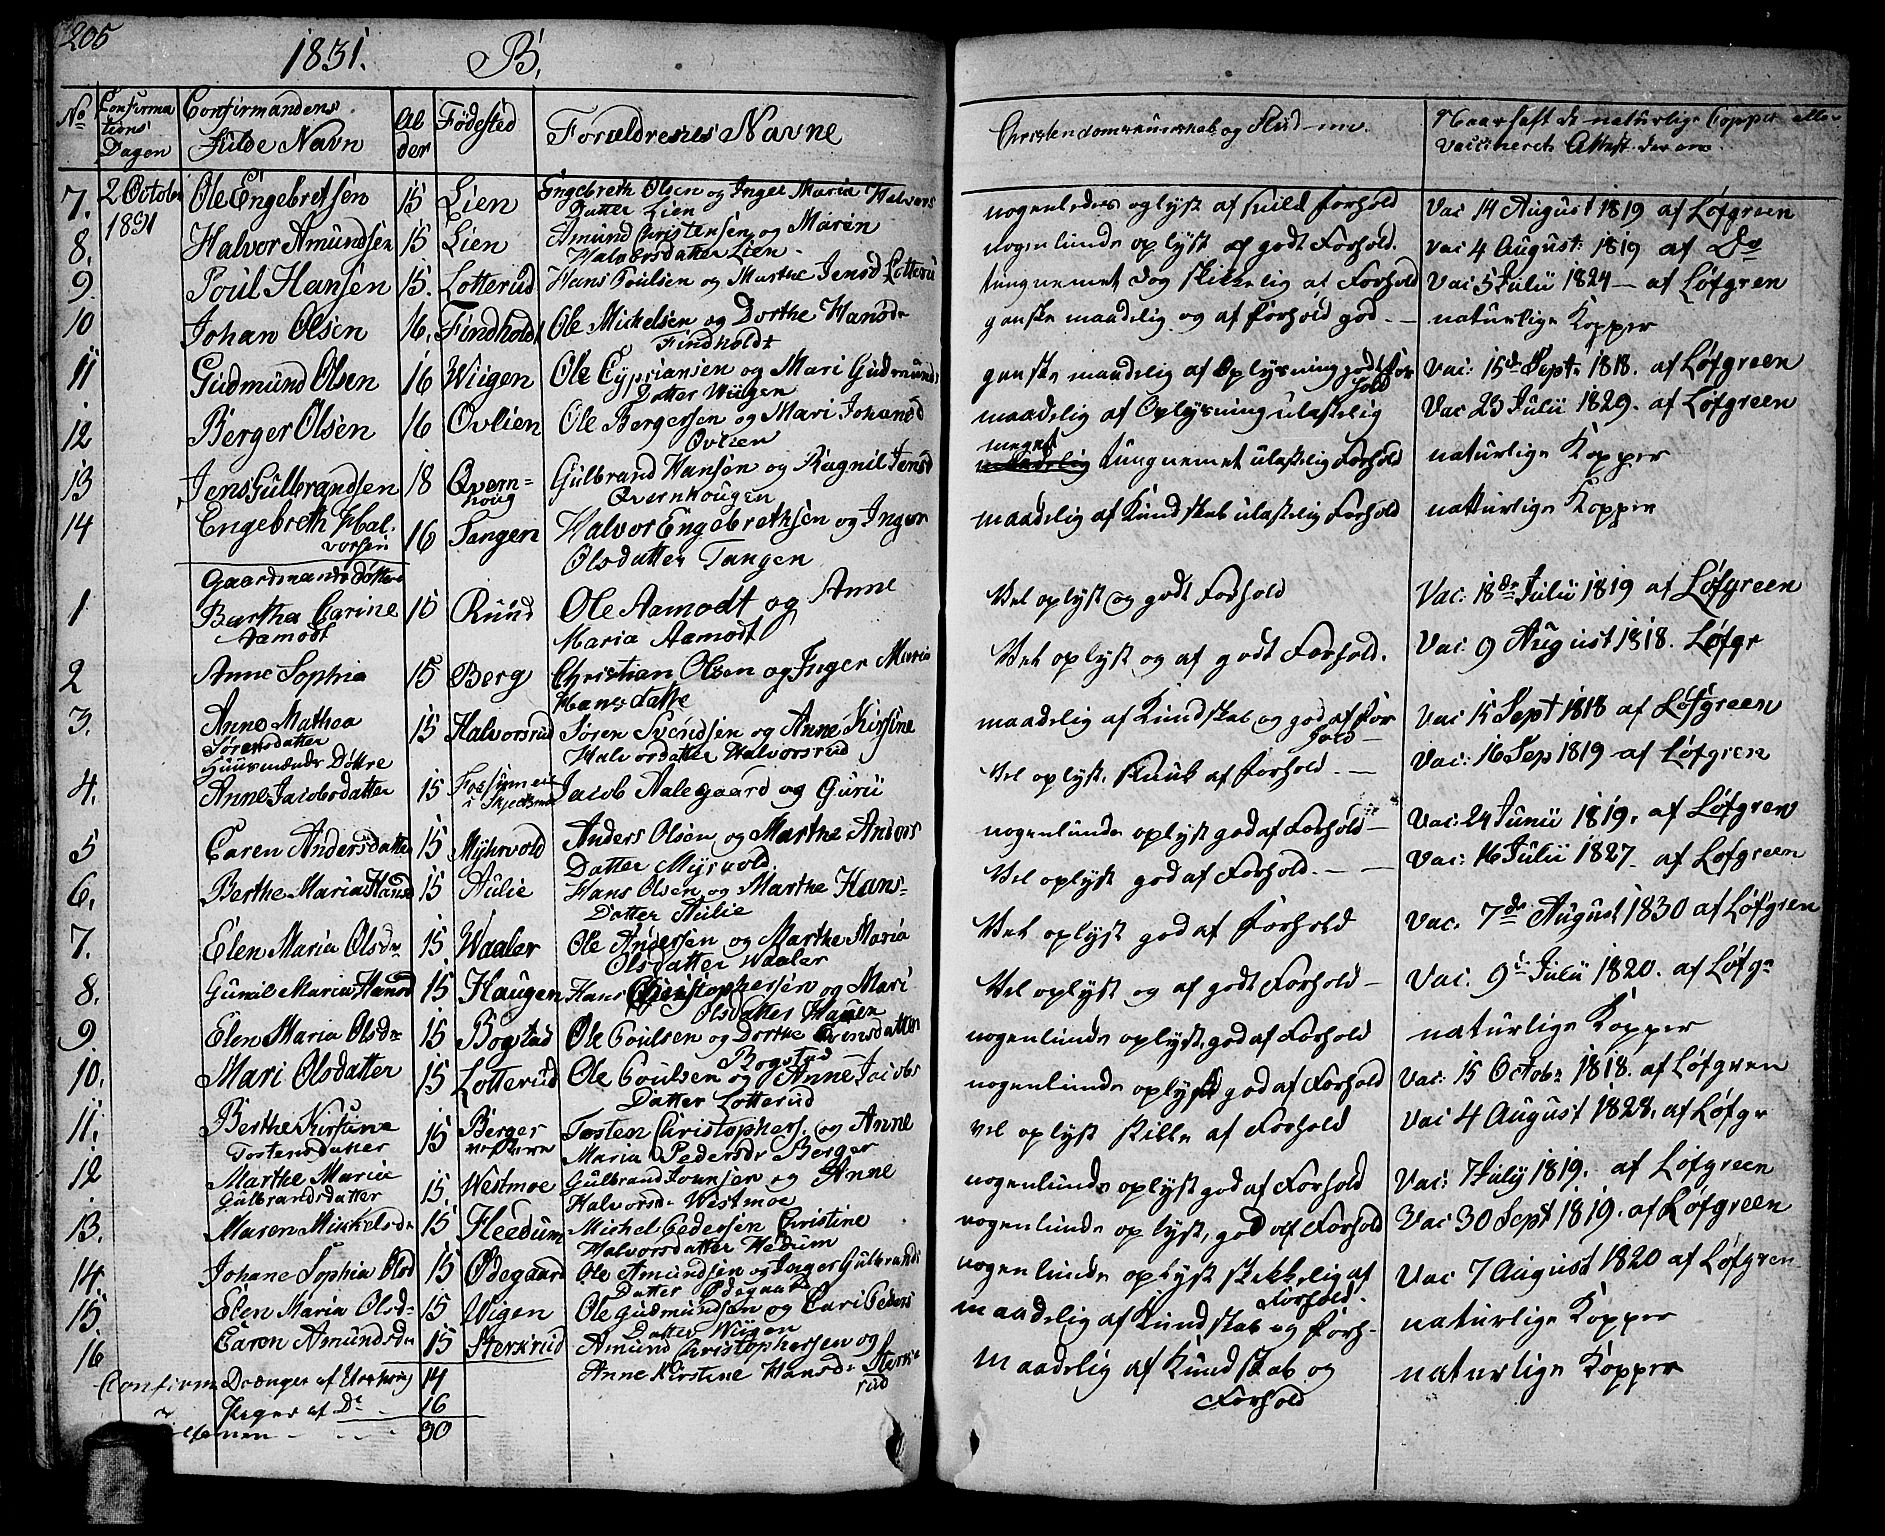 205
1831. B.
No Confirmations Dagen Confirmandens fulde Navn Alder Fødested Forældrenes Navne Christendomskundskab og Flid Naar haft de naturlige Kopper eller vaccineret Attest derom
7. 2 Octobr 1831 Ole Engebretsen 15 Lien Engebreth Olsen og Ingel Maria Halvors Datter Lien oplyst af Forhold Vac 14 August 1819 af Løfgreen
8. Halvor Amundsen 15 Lien Amund Christensen og Maren Halvorsdatter Lien nogenlunde oplyst af godt Forhold. Vac 4 August: 1819 af Do
9. Poul Hansen 15. Lotterud Hans Poulsen og Marthe Jensd Lotterü tungnemet dog skikkelig af Forhold Vac 5 Julii 1824 – af Løfgren
10 Johan Olsen 16. Findholdt Ole Mickelsen og Dorthe Hansdr Findholdt ganske maadelig og af Forhold god – naturlige Kopper
11 Gudmünd Olsen 16 Wiigen Ole Cypriansen og Mari Gudmunds Datter Wiigen ganske maadelig af Oplysning godt Forhold Vac: 15de Septr 1818. af Løfgreen
12 Berger Olsen 16 Ovlien Ole Bergersen og Mari Johansd Ovlien maadelig af Oplysning ulastelig Vac 23 Julii 1829. af Løfgreen
13 Jens Gulbrandsen 18 Qvernhoug Gulbrand Hansen og Ragnil Jensd Qvernhougen meget tungnemet ulastelig Forhold naturlige Kopper
14 Engebreth Halvorsen 16 Tangen Halvor Engebrethsen og Inger Olsdatter Tangen maadelig af Kundskab ulastelig Forhold naturlige Kopper
Gaardmands Døttre
1 Bertha Carine Aamodt 15 Ründ Ole Aamodt og Anne Maria Aamodt Vel oplyst og godt Forhold Vac: 18de Julii 1819 af Løfgreen
2 Anne Sophia 15 Berg Christian Olsen og Inger Maria Hansdatte Vel oplyst og af godt Forhold. Vac: 9 August 1818. Løfgr
3. Anne Mathea Sørensdatter 15 Halvorsrud Søren Svendsen og Anne Kirstine Halvordatter Halvorsrud maadelig af Kundskab og god af Forhold – Vac 15 Sept 1818 af Løfgreen
Huusmænds Døttre
4. Anne Jacobsdatter 15 Jacob Aalegaard og Gurü Vel oplyst, af Forhold. – Vac: 16 Sep 1819 – af Løfgren
5 Caren Andersdatter 15 Myhrvold Anders Olsen og Marthe Anders Datter Myrvold nogenlunde oplyst god af Forhold – Vac: 24 Junii 1819, af Løfgren
6. Berthe Maria Hansd 15 Aulie Hans Olsen og Marthe Hans- Datter Aulie Vel oplyst god af Forhold. – – Vac: 16 Julii 1827 – af Løfgreen
7. Elen Maria Olsdr 15. Waaler Ole Andersen og Marthe Maria Olsdatter Waaler Vel oplyst god af Forhold Vac. 7de August 1830 af Løfgren
8. Gunil Maria Hansd 15 Haugen Hans Christophersen og Mari Olsdatter Hauen Vel oplyst og af godt Forhold – Vac. 9 Julii 1820. af Løfgr
9. Elen Maria Olsdr 15 Bogstad Ole Poulsen og Dorthe Evensdatter Bogstad nogenlunde oplyst, god af Forhold naturlige Kopper
10. Mari Olsdatter 15 Lotterud Ole Poulsen og Anne Jacobs Datter Lotterud nogenlunde oplyst god af Forhold Vac: 15 Octobr 1818. af Løfgren
11. Berthe Kirstine Tostensdatter 15 Berger Tosten Christophers. og Anne Maria Pedersdr Berger vel oplyst stille af Forhold Vac 4 August 1828, af Løfgr
12 Marthe Maria Gulbrandsdatter 15. Westmoe Gulbrand Jonnsen og Anne Halvorsdr Westmoe nogenlunde oplyst god af Forhold Vac: 7 July 1819. af Løfgreen
13. Maren Mikkelsdr 15 Heedum Mickel Pedersen Christine Halvorsdatter Hedum nogenlunde oplyst, god af Forhold Vac 30 Sept 1819. af Løfgreen
14. Johane Sophia Olsd 15 Ødegaard Ole Amundsen og Inger Gulbrands Datter Ødegaard nogenlunde oplyst skikkelig af Forhold. Vac 7 August 1820 af Løfgren
15. Elen Maria Olsdr 15 Wigen Ole Gudmundsen og Cari Peders Datter Wiigen maadelig af Kundskab og Forh- naturlige Kopper
16 Caren Amundsdr 15 Sterkrud Amund Christophersen og Anne Kirstine Hansdr Sterkrud maadelig af Kundskab og Forhold naturlige Kopper
Confirm Drænger af 14
Piger af Do 16
30